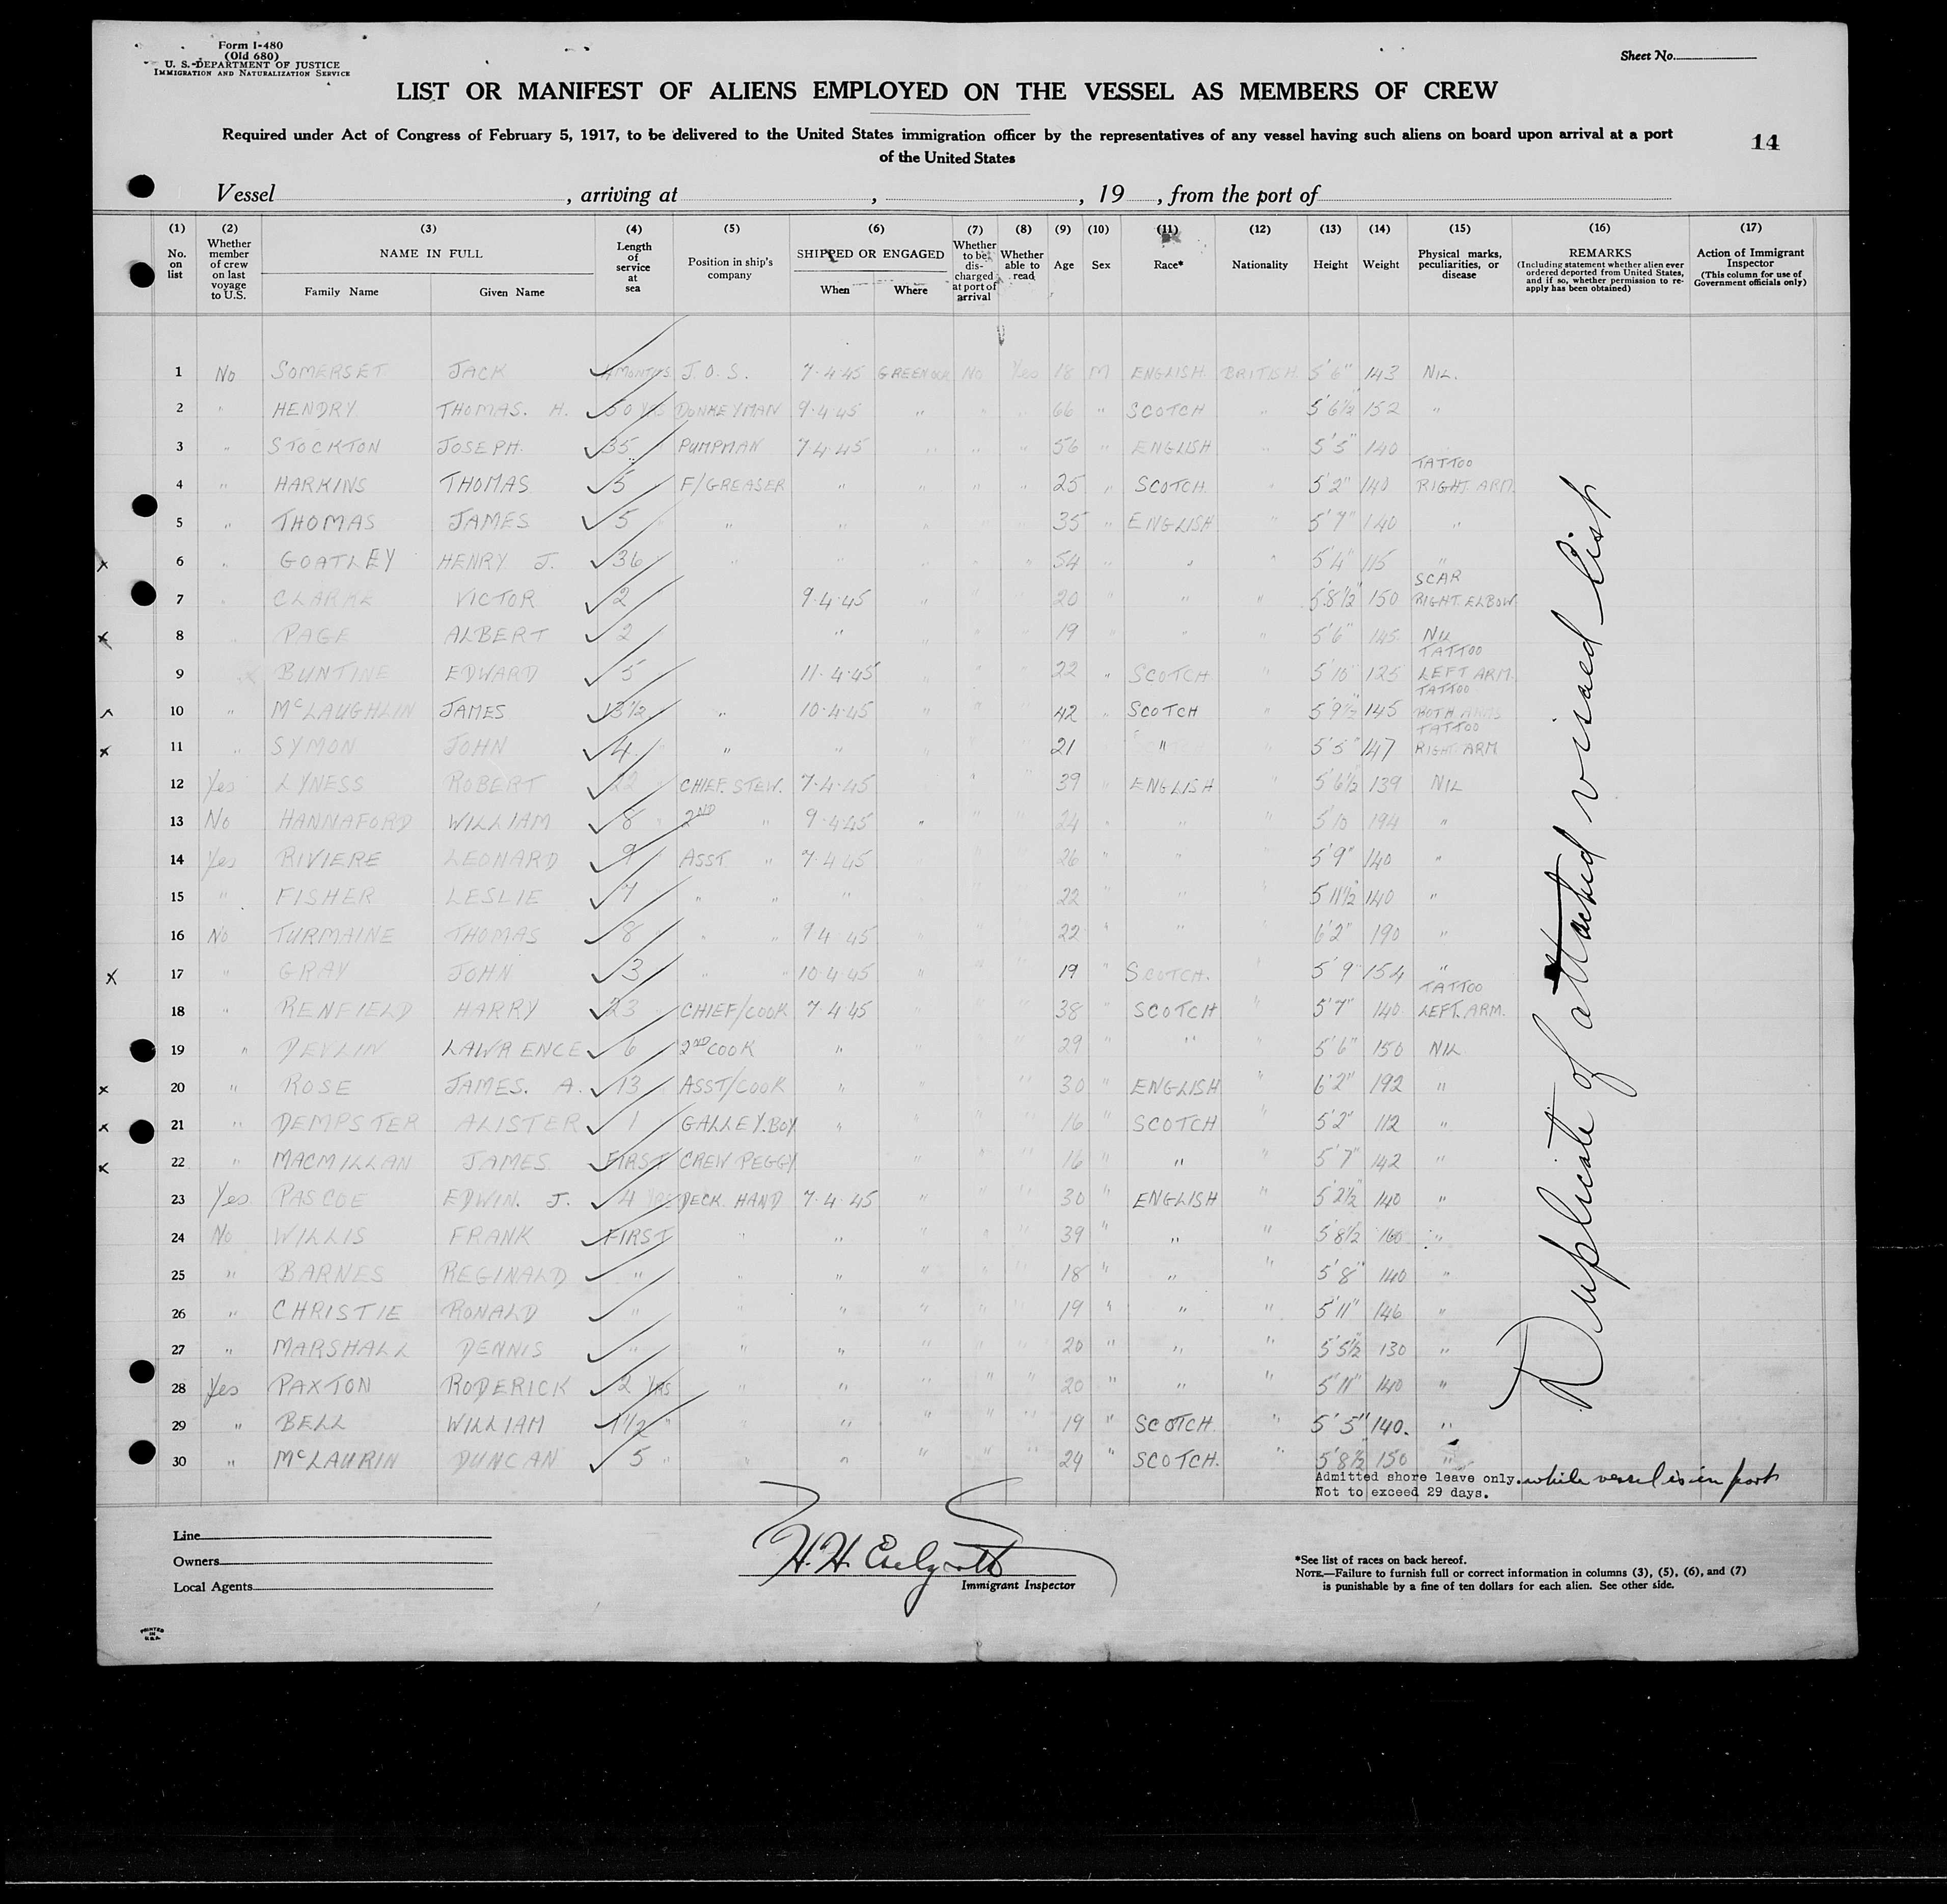 Form I-480
(Old 680)
U. S. DEPARTMENT OF JUSTICE
IMMIGRATION AND NATURALIZATION SERVICE
Sheet No.
LIST OR MANIFEST OF ALIENS EMPLOYED ON THE VESSEL AS MEMBERS OF CREW
Required under Act of Congress of February 5, 1917, to be delivered to the United States immigration officer by the representatives of any vessel having such aliens on board upon arrival at a port
of the United States
14
Vessel , arriving at , , 19 , from the port of
(1) (2) (3) (4) (5) (6) (7) (8) (9) (10) (11) (12) (13) (14) (15) (16) (17)
No. on list
Whether member of crew on last voyage to U.S.
NAME IN FULL
Family Name Given Name
Length of service at sea
Position in ship's company
SHIPPED OR ENGAGED
When Where
Whether to be discharged at port of arrival
Whether able to read
Age
Sex
Race*
Nationality
Height
Weight
Physical marks, peculiarities, or disease
REMARKS
(Including statement whether alien ever ordered deported from United States, and if so, whether permission to re-apply has been obtained)
Action of Immigrant Inspector
(This column for use of Government officials only)
1 No SOMERSET JACK 4 MONTHS J.O.S. 7-4-45 GREENOCK No Yes 18 M ENGLISH BRITISH 5'6" 143 NIL.
2 " HENDRY THOMAS. H. 50 YRS DONKEYMAN 9-4-45 " " " 66 " SCOTCH " 5'6½ 152 "
3 " STOCKTON JOSEPH. 35 " PUMPMAN 7-4-45 " " " 56 " ENGLISH " 5'5" 140
4 " HARKINS THOMAS 5 " F/GREASER " " " " 25 " SCOTCH. " 5'2" 140 TATTOO RIGHT. ARM.
5 " THOMAS JAMES 5 " " " " " 35 " ENGLISH " 5'7" 140 "
6 " GOATLEY HENRY J. 36 " " " " " 54 " " " 5'4" 115 "
7 " CLARKE VICTOR 2 9-4-45 " " " 20 " " " 5'8½" 150 SCAR RIGHT. ELBOW.
8 " PAGE ALBERT 2 " " " " 19 " " " 5'6" 145 NIL
9 BUNTINE EDWARD 5 11-4-45 " " " 22 " SCOTCH " 5'10" 125 TATTOO LEFT ARM.
10 " McLAUGHLIN JAMES 13½ " 10-4-45 " " " 42 " SCOTCH " 5'9½" 145 TATTOO BOTH ARMS
11 " SYMON JOHN 4 " " " " " 21 " " 5'5" 147 TATTOO RIGHT ARM
12 Yes LYNESS ROBERT 22 CHIEF. STEW. 7-4-45 " " " 39 " ENGLISH " 5'6½ 139 NIL
13 No HANNAFORD WILLIAM 8 " 2ND " 9-4-45 " " " 24 " " " 5'10 194 "
14 Yes RIVIERE LEONARD 9 ASST. " 7-4-45 " " " 26 " " " 5'9" 140 "
15 " FISHER LESLIE 7 " " " " " " 22 " " " 5'11½" 140 "
16 No TURMAINE THOMAS 8 " " 9-4-45 " " " 22 " " " 6'2" 190 "
17 " GRAY JOHN 3 " " 10-4-45 " " " 19 " SCOTCH. " 5'9" 154 "
18 " RENFIELD HARRY 23 CHIEF/COOK 7-4-45 " " " 38 " SCOTCH " 5'7" 140 TATTOO LEFT. ARM.
19 " DEVLIN LAWRENCE 6 2ND COOK " " " " 29 " " " 5'6" 150 NIL
20 " ROSE JAMES. A. 13 ASST/COOK " " " " 30 " ENGLISH " 6'2" 192 "
21 " DEMPSTER ALISTER 1 GALLEY.BOY " " " " 16 " SCOTCH " 5'2" 112 "
22 " MACMILLAN JAMES FIRST CREW PEGGY " " " 16 " " " 5'7" 142 "
23 Yes PASCOE EDWIN. J. 4 YRS DECK HAND 7-4-45 " " " 30 " ENGLISH " 5'2½" 140 "
24 No WILLIS FRANK FIRST " " " " " 39 " " " 5'8½ 160 "
25 " BARNES REGINALD " " " " " " 18 " " " 5'8" 140 "
26 " CHRISTIE RONALD " " " " " " 19 " " " 5'11" 146 "
27 " MARSHALL DENNIS " " " " " " 20 " " " 5'5½" 130 "
28 Yes PAXTON RODERICK 2 YRS " " " " " 20 " " " 5'11" 140 "
29 " BELL WILLIAM 1½ " " " " " 19 " SCOTCH " 5'5" 140. "
30 " McLAURIN DUNCAN 5 " " " " " " 24 " SCOTCH. " 5'8½" 150 "
Duplicate of attached visaed list
Admitted shore leave only. while vessel is in port
Not to exceed 29 days.
Line
Owners
Local Agents
H. H.
Immigrant Inspector
*See list of races on back hereof.
NOTE.—Failure to furnish full or correct information in columns (3), (5), (6), and (7)
is punishable by a fine of ten dollars for each alien. See other side.
PRINTED
IN
U.S.A.